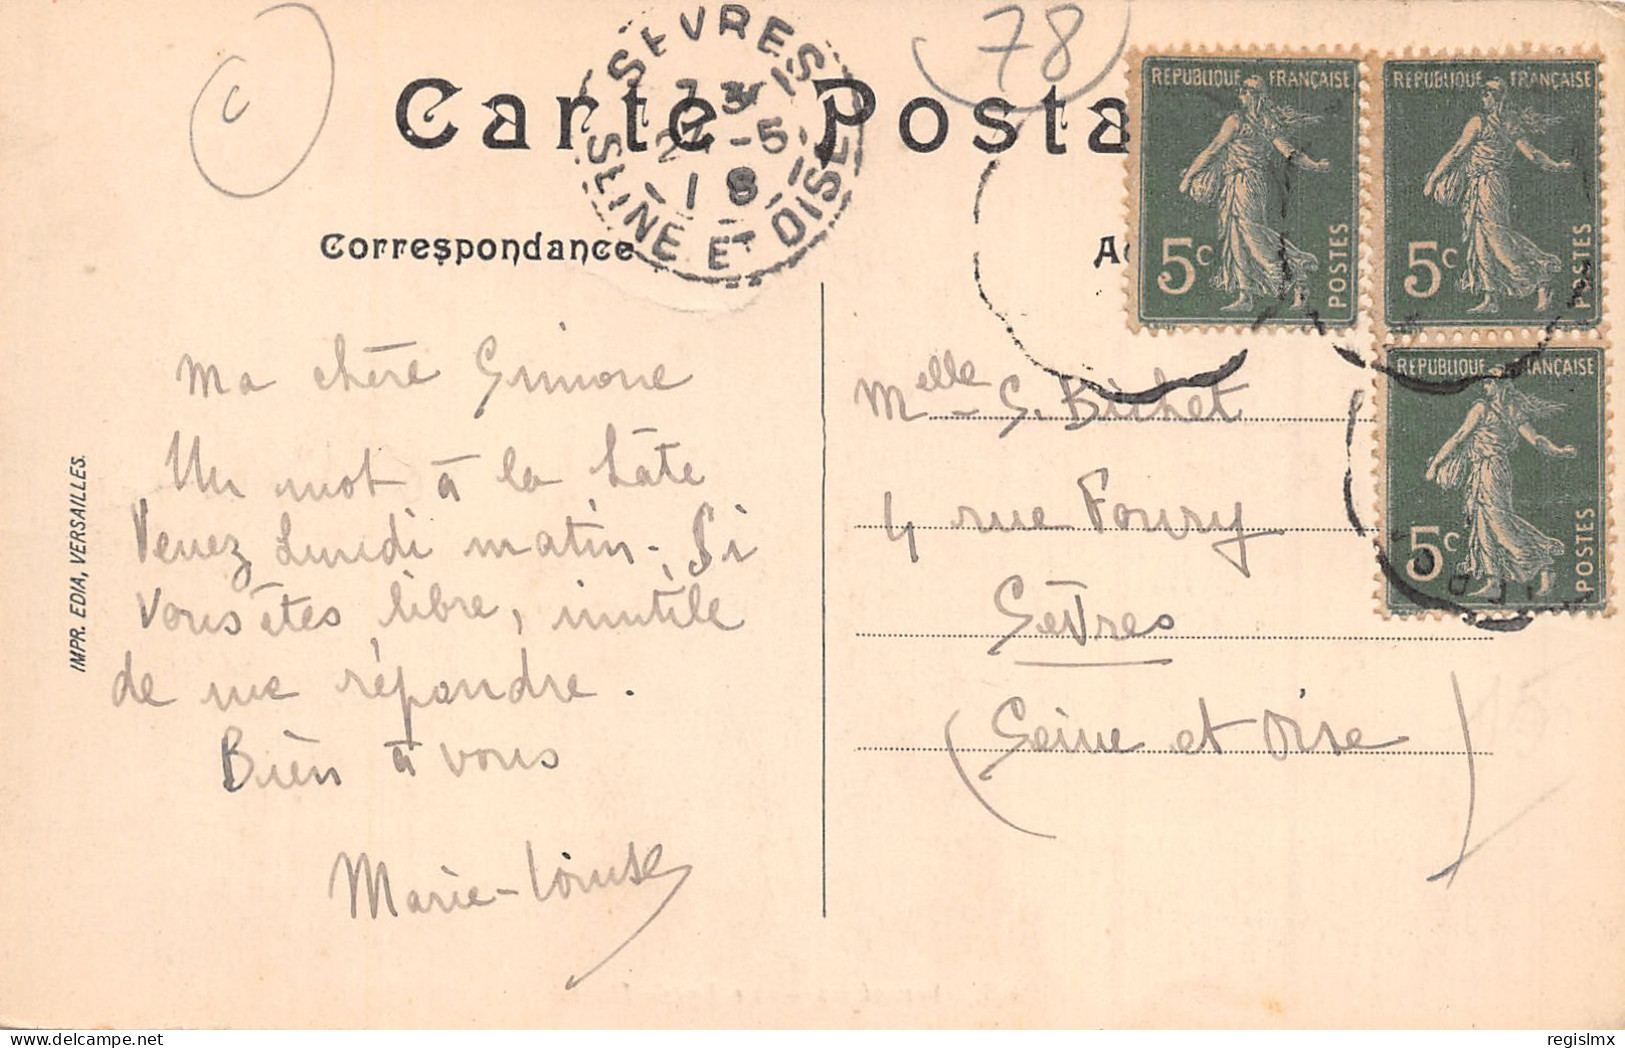 78
C
Carte Posta
SEVRES
SEINE ET OISE
-5
18
Correspondance
RÉPUBLIQUE FRANÇAISE
5c
POSTES
RÉPUBLIQUE FRANÇAISE
5c
POSTES
RÉPUBLIQUE FRANÇAISE
5c
POSTES
Ma chère Simone
Un mot à la hâte
Venez Lundi matin. Si
vous êtes libre, inutile
de me répondre.
Bien à vous
Marie-Louise
Melle S. Bichet
4 rue Foury
Sèvres
(Seine et Oise)
IMPR. EDIA, VERSAILLES.
regislmx